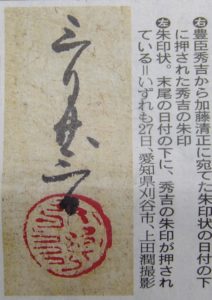 右豊臣秀吉から加藤清正に宛てた朱印状の日付の下
に押された秀吉の朱印
左朱印状。末尾の日付の下に、秀吉の朱印が押され
ている＝いずれも27日、愛知県刈谷市、上田潤撮影